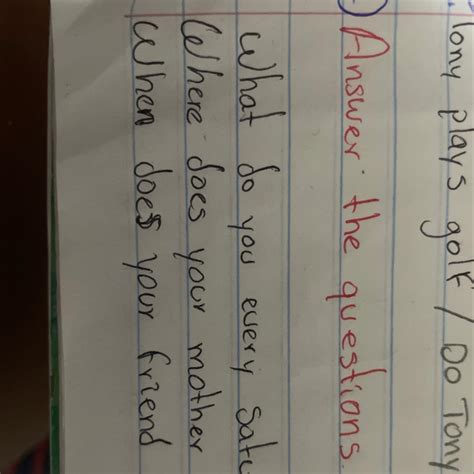 Tony plays golf / Do Tony
) Answer the questions
What do you every Satu
Where does your mother
When does your friend